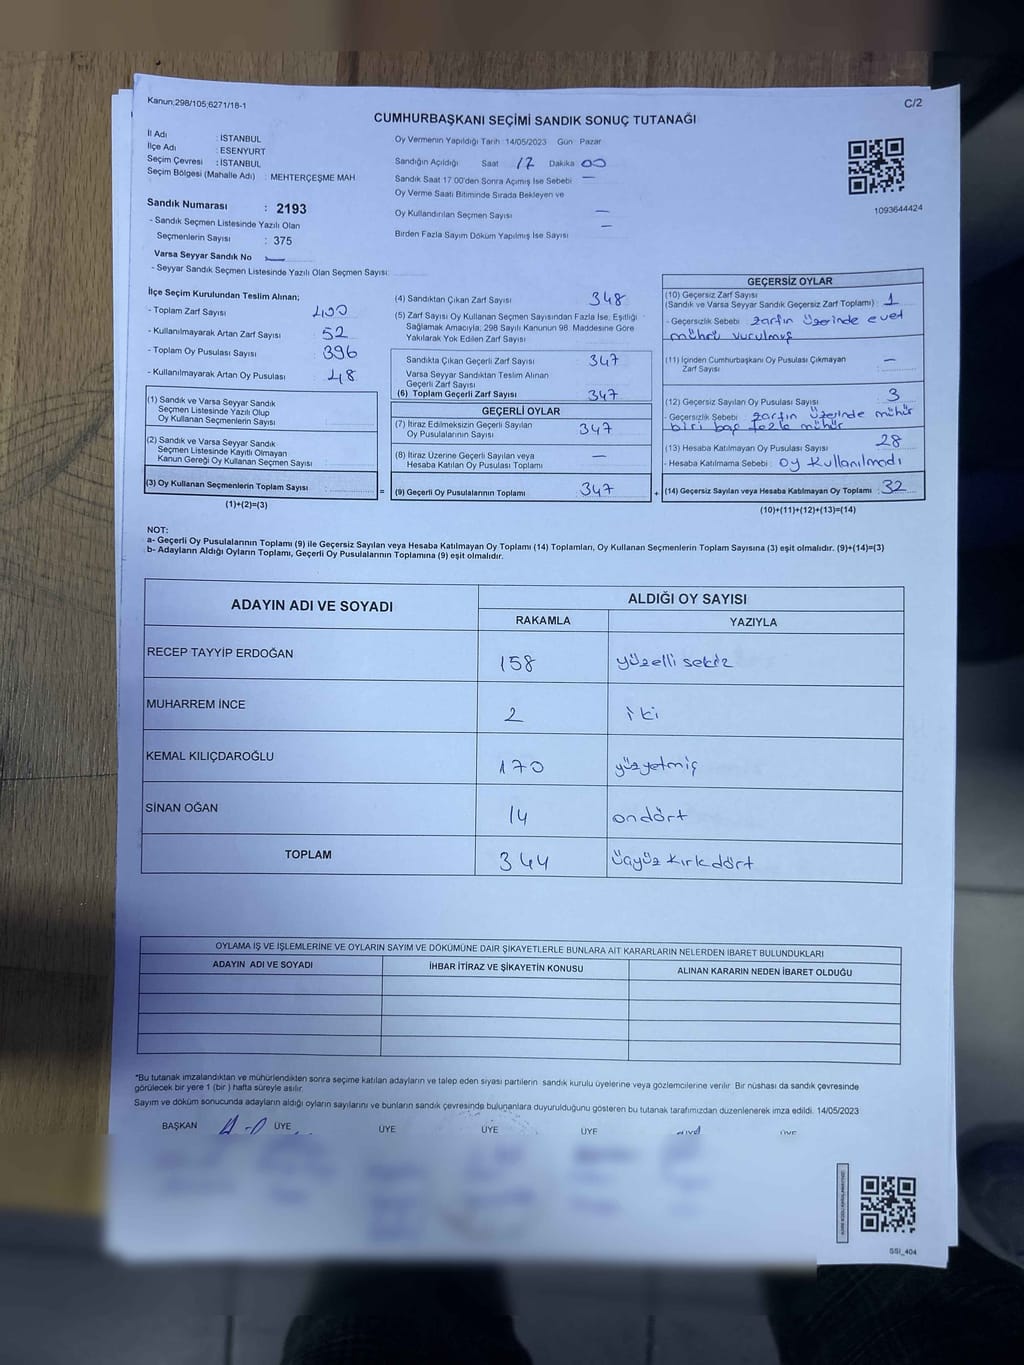 Kanun;298/105;6271/18-1
C/2
CUMHURBAŞKANI SEÇİMİ SANDIK SONUÇ TUTANAĞI
İl Adı : İSTANBUL
İlçe Adı : ESENYURT
Seçim Çevresi : İSTANBUL
Seçim Bölgesi (Mahalle Adı) : MEHTERÇEŞME MAH
Oy Vermenin Yapıldığı Tarih 14/05/2023 Gün Pazar
Sandığın Açıldığı Saat 17 Dakika 00
Sandık Saat 17.00'den Sonra Açımış İse Sebebi —
Oy Verme Saati Bitiminde Sırada Bekleyen ve
Oy Kullandırılan Seçmen Sayısı —
Birden Fazla Sayım Döküm Yapılmış İse Sayısı —
1093644424
Sandık Numarası : 2193
- Sandık Seçmen Listesinde Yazılı Olan
Seçmenlerin Sayısı : 375
Varsa Seyyar Sandık No —
- Seyyar Sandık Seçmen Listesinde Yazılı Olan Seçmen Sayısı:
İlçe Seçim Kurulundan Teslim Alınan;
- Toplam Zarf Sayısı 400
- Kullanılmayarak Artan Zarf Sayısı 52
- Toplam Oy Pusulası Sayısı 396
- Kullanılmayarak Artan Oy Pusulası 48
(1) Sandık ve Varsa Seyyar Sandık
Seçmen Listesinde Yazılı Olup
Oy Kullanan Seçmenlerin Sayısı
(2) Sandık ve Varsa Seyyar Sandık
Seçmen Listesinde Kayıtlı Olmayan
Kanun Gereği Oy Kullanan Seçmen Sayısı
(3) Oy Kullanan Seçmenlerin Toplam Sayısı
(1)+(2)=(3)
=
(4) Sandıktan Çıkan Zarf Sayısı 348
(5) Zarf Sayısı Oy Kullanan Seçmen Sayısından Fazla İse, Eşitliği
Sağlamak Amacıyla; 298 Sayılı Kanunun 98. Maddesine Göre
Yakılarak Yok Edilen Zarf Sayısı
Sandıkta Çıkan Geçerli Zarf Sayısı 347
Varsa Seyyar Sandıktan Teslim Alınan
Geçerli Zarf Sayısı
(6) Toplam Geçerli Zarf Sayısı 347
GEÇERLİ OYLAR
(7) İtiraz Edilmeksizin Geçerli Sayılan
Oy Pusulalarının Sayısı 347
(8) İtiraz Üzerine Geçerli Sayılan veya
Hesaba Katılan Oy Pusulası Toplamı —
(9) Geçerli Oy Pusulalarının Toplamı 347
+
GEÇERSİZ OYLAR
(10) Geçersiz Zarf Sayısı
(Sandık ve Varsa Seyyar Sandık Geçersiz Zarf Toplamı) : 1
- Geçersizlik Sebebi : zarfın üzerinde evet
mührü vurulmuş
(11) İçinden Cumhurbaşkanı Oy Pusulası Çıkmayan
Zarf Sayısı : —
(12) Geçersiz Sayılan Oy Pusulası Sayısı 3
- Geçersizlik Sebebi : zarfın üzerinde mühür
biri boş fazla mühür
(13) Hesaba Katılmayan Oy Pusulası Sayısı 28
- Hesaba Katılmama Sebebi : oy kullanılmadı
(14) Geçersiz Sayılan veya Hesaba Katılmayan Oy Toplamı : 32
(10)+(11)+(12)+(13)=(14)
NOT:
a- Geçerli Oy Pusulalarının Toplamı (9) ile Geçersiz Sayılan veya Hesaba Katılmayan Oy Toplamı (14) Toplamları, Oy Kullanan Seçmenlerin Toplam Sayısına (3) eşit olmalıdır. (9)+(14)=(3)
b- Adayların Aldığı Oyların Toplamı, Geçerli Oy Pusulalarının Toplamına (9) eşit olmalıdır.
ADAYIN ADI VE SOYADI
ALDIĞI OY SAYISI
RAKAMLA YAZIYLA
RECEP TAYYİP ERDOĞAN 158 yüzelli sekiz
MUHARREM İNCE 2 iki
KEMAL KILIÇDAROĞLU 170 yüzyetmiş
SİNAN OĞAN 14 ondört
TOPLAM 344 üçyüz kırkdört
OYLAMA İŞ VE İŞLEMLERİNE VE OYLARIN SAYIM VE DÖKÜMÜNE DAİR ŞİKAYETLERLE BUNLARA AİT KARARLARIN NELERDEN İBARET BULUNDUKLARI
ADAYIN ADI VE SOYADI İHBAR İTİRAZ VE ŞİKAYETİN KONUSU ALINAN KARARIN NEDEN İBARET OLDUĞU
*Bu tutanak imzalandıktan ve mühürlendikten sonra seçime katılan adayların ve talep eden siyasi partilerin sandık kurulu üyelerine veya gözlemcilerine verilir. Bir nüshası da sandık çevresinde
görülecek bir yere 1 (bir ) hafta süreyle asılır.
Sayım ve döküm sonucunda adayların aldığı oyların sayılarını ve bunların sandık çevresinde bulunanlara duyurulduğunu gösteren bu tutanak tarafımızdan düzenlenerek imza edildi. 14/05/2023
BAŞKAN ÜYE ÜYE ÜYE ÜYE
SSI_404